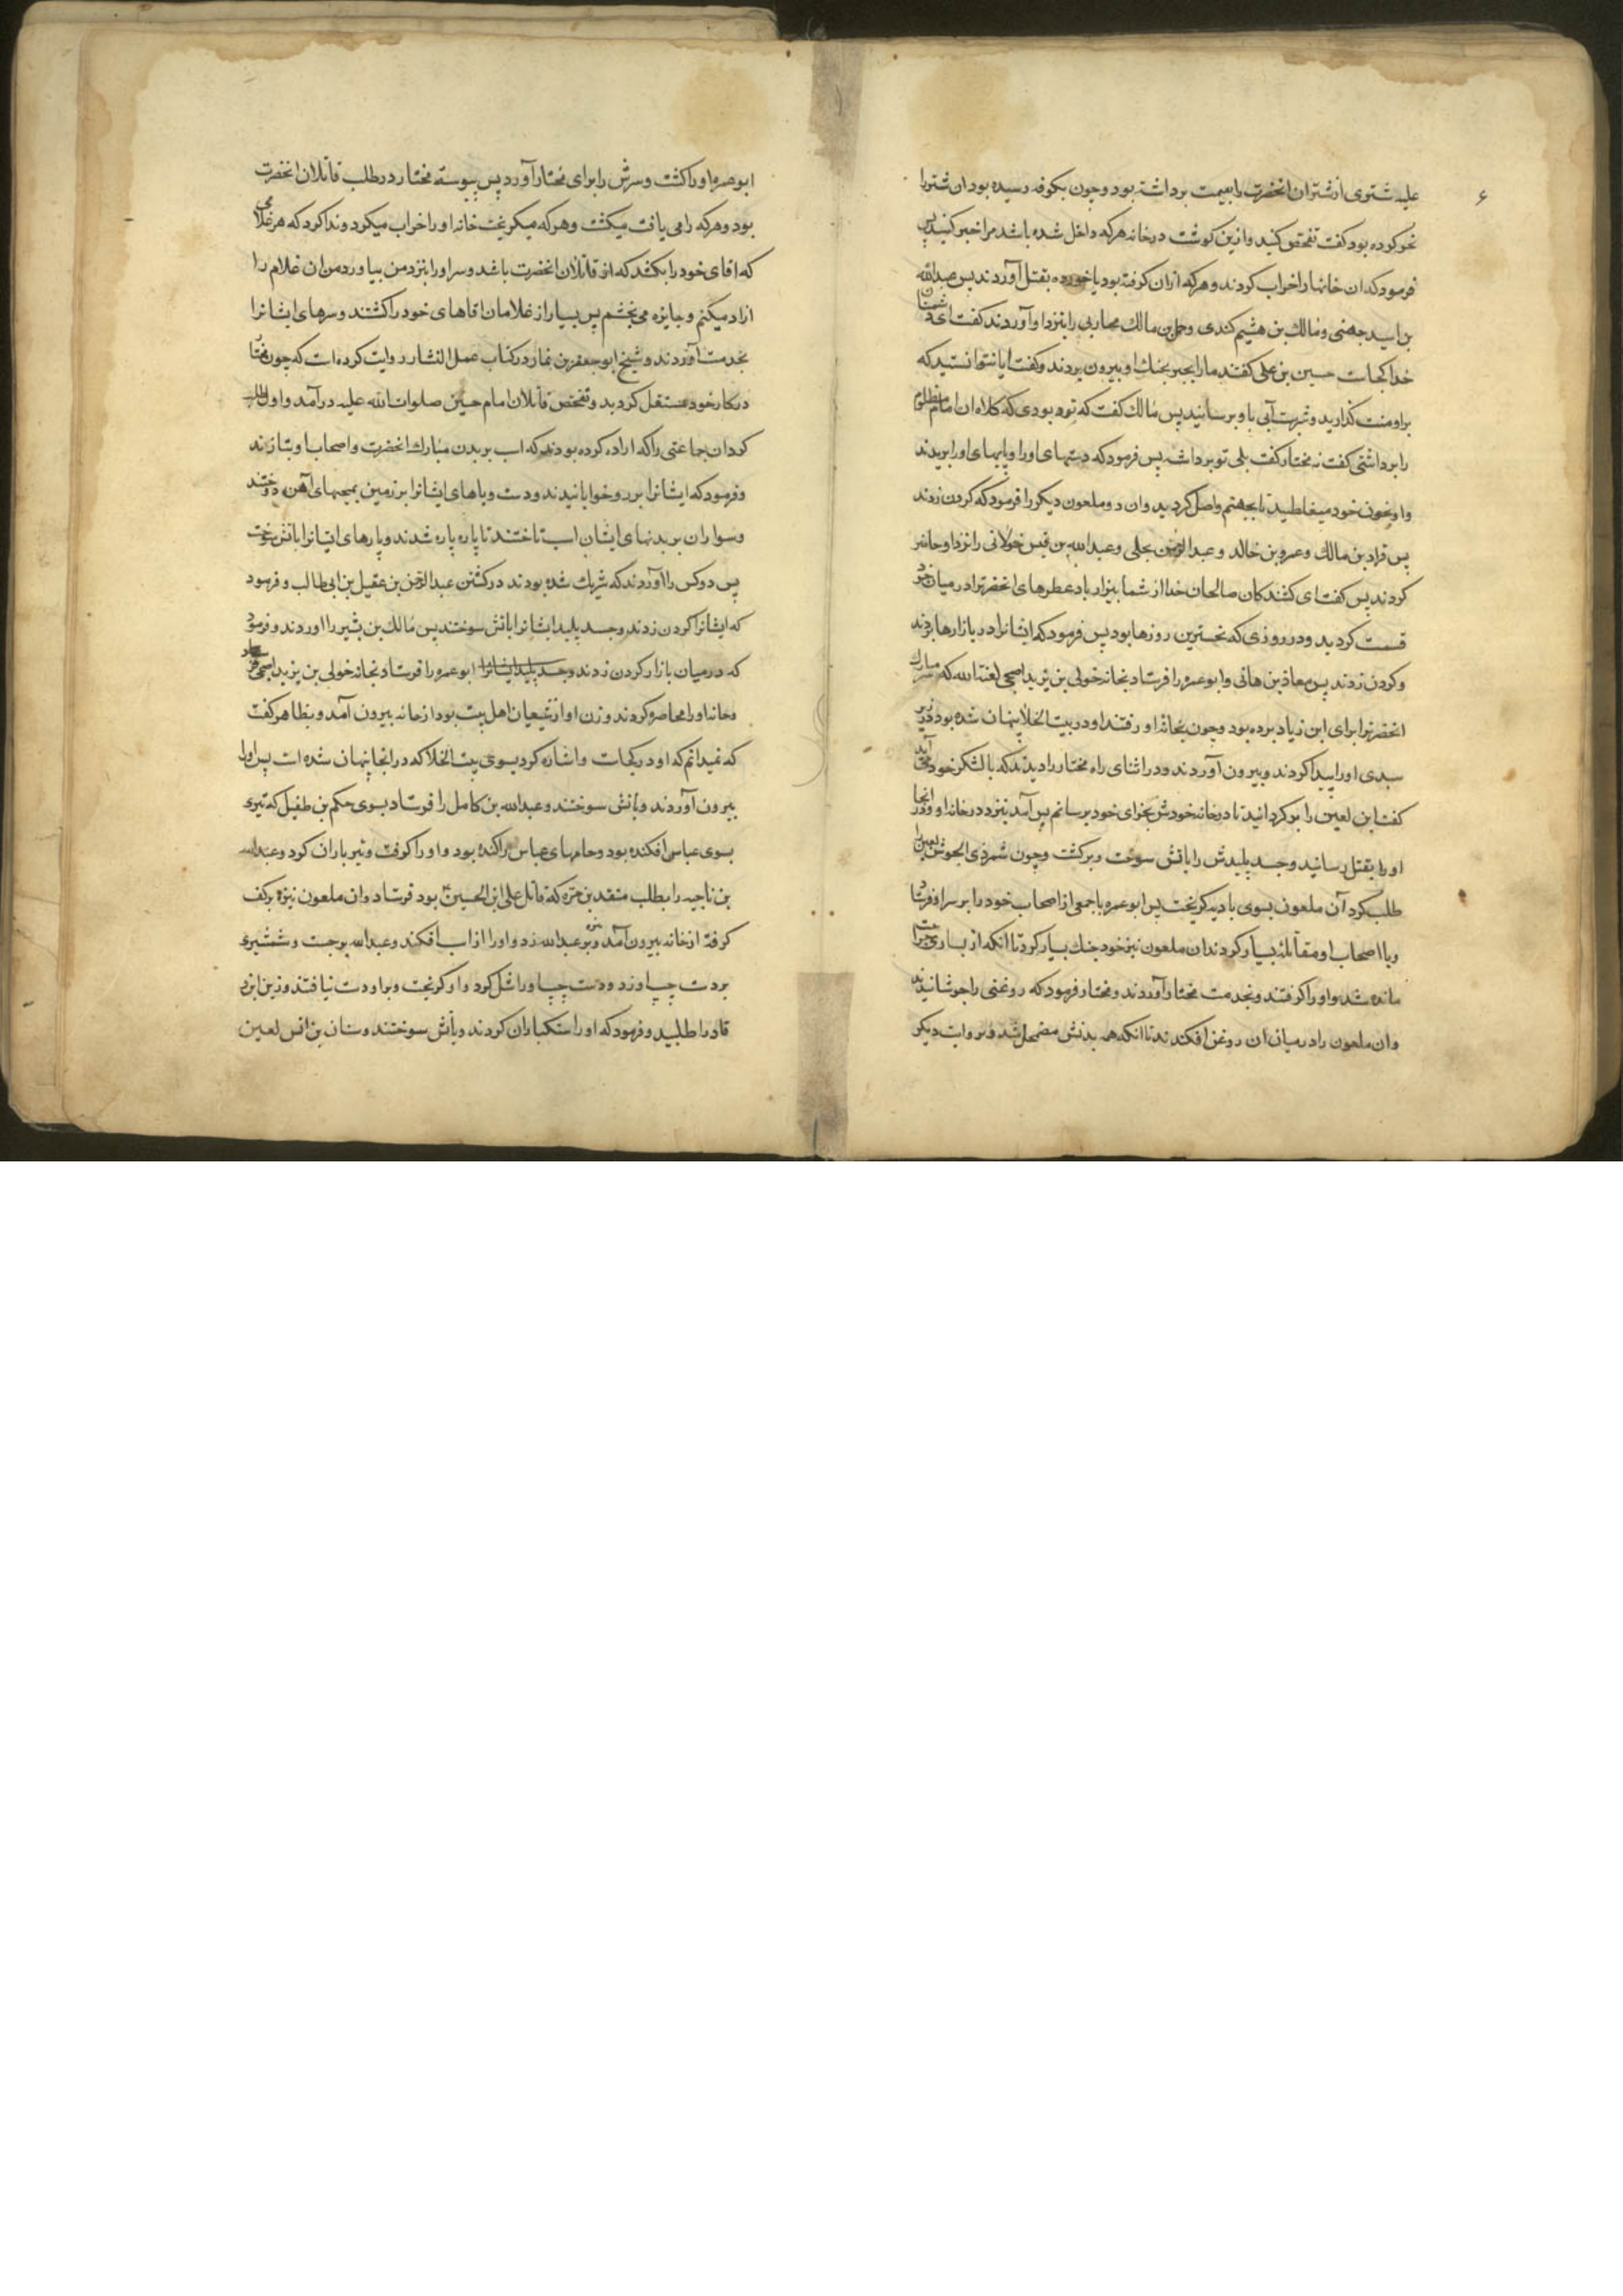 ۶
علیه شتری از شتران انحضرت را بغنیمت برداشته بود و چون بکوفه رسیده بود ان شتر را
نحر کرده بود کفت تفحص کنید و ازین کوشت در خانه هر که داخل شده باشد مرا خبر کنید پس
فرمود که ان خانها را خراب کردند و هر که از ان کرفته بود یا خورده بقتل آوردند پس عبدالله
بن اسید جهنی و مالك بن هشیم کندی و حمل بن مالك محاربی را بنزد او آوردند کفت ای دشمنان
خدا کجاست حسین بن علی کفتند ما را بجبر بجنك او بیرون بردند و کفت ایا نتوانستید که
بر او منت کذارید و شربت آبی باو برسانید پس مالك کفت که تو بودی که کلاه ان امام مظلوم
را برداشتی کفت نه مختار کفت بلی تو برداشته پس فرمود که دستهای او را و پایهای او را بریدند
و او بخون خود میغلطید تا بجهنم واصل کردید و ان دو ملعون دیکر را فرمود که کردن زدند
پس قراد بن مالك و عمرو بن خالد و عبدالرحمن بجلی و عبدالله بن قیس خولانی را نزد او حاضر
کردند پس کفت ای کشندکان صالحان خدا از شما بیزار باد عطرهای انحضرترا در میان خود
قسمت کردید و در روزی که نحسترین روزها بود پس فرمود که ایشانرا در بازارها بردند
و کردن زدند پس معاذ بن هانی و ابو عمره را فرستاد بخانه خولی بن یزید اصبحی لعنة الله که سر مبارك
انحضرترا برای ابن زیاد برده بود و چون بخانه او رفتند او در بیت الخلا پنهان شده بود در زیر
سبدی او را پیدا کردند و بیرون آوردند و در اثنای راه مختار را دیدند که با لشکر خود می آید
کفت این لعین را بر کردانید تا در خانه خودش بجزای خود برسانم پس آمد بنزد در خانه او و در انجا
او را بقتل رسانید و جسد پلیدش را باتش سوخت و برکشت و چون شمر ذی الجوشن لعین را
طلب کرد آن ملعون بسوی بادیه کریخت پس ابو عمره با جمعی از اصحاب خود را بر سر او فرستاد
و با اصحاب او مقاتله بسیار کردند ان ملعون نیز خود جنك بسیار کرد تا انکه از بسیاری جراحت
مانده شد و او را کرفتند و بخدمت مختار آوردند و مختار فرمود که روغنی را جوشانیدند
و ان ملعون را در میان ان روغن افکندند تا انکه همه بدنش مضمحل شد و بروایت دیکر
ابو عمره او را کشت و سرش را برای مختار آورد پس پیوسته مختار در طلب قاتلان انحضرت
بود و هر که را می یافت میکشت و هر که میکریخت خانه او را خراب میکرد و ندا کرد که هر غلامی
که اقای خود را بکشد که از قاتلان انحضرت باشد و سر او را بنزد من بیاورد من ان غلام را
ازاد میکنم و جایزه می بخشم پس بسیار از غلامان اقاهای خود را کشتند و سرهای ایشانرا
بخدمت آوردند و شیخ ابو جعفر بن نما در کتاب عمل الثار روایت کرده است که چون مختار
در کار خود مستقل کردید و تفحص قاتلان امام حسین صلوات الله علیه در آمد و اول طلب
کرد ان جماعتی را که اراده کرده بودند که اسب بر بدن مبارك انحضرت و اصحاب او بتازند
و فرمود که ایشانرا بر رو خوابانیدند و دست و پاهای ایشانرا بر زمین بمیخهای آهن دوختند
و سواران بر بدنهای ایشان اسب تاختند تا پاره پاره شدند و پارهای ایشانرا باتش سوخت
پس دو کس را آوردند که شریك شده بودند در کشتن عبدالرحمن بن عقیل بن ابی طالب و فرمود
که ایشانرا کردن زدند و جسد پلید ایشانرا باتش سوختند پس مالك بن بشیر را اوردند و فرمود
که در میان بازار کردن زدند و جسد پلید ایشانرا ابو عمره را فرستاد بخانه خولی بن یزید اصبحی
و خانه او را محاصره کردند و زن او از شیعیان اهل بیت بود از خانه بیرون آمد و بظاهر کفت
که نمیدانم که او در کجاست و اشاره کرد بسوی بیت الخلا که در انجا پنهان شده است پس او را
بیرون آوردند و باتش سوختند و عبدالله بن کامل را فرستاد بسوی حکم بن طفیل که تیری
بسوی عباس افکنده بود و جامهای عباس را کنده بود و او را کرفت و تیر باران کرد و عبدالله
بن ناجیه را بطلب منقذ بن مره که قاتل علی ابن الحسین بود فرستاد و ان ملعون نیزه بر کف
کرفته از خانه بیرون آمد و نیزه بر عبدالله زد و او را از اسب افکند و عبدالله برجست و شمشیری
بر دست چپ او زد و دست چپ او را شل کرد و او کریخت و بر او دست نیافتند و زین ابن
قاد را طلبید و فرمود که او را سنکباران کردند و باتش سوختند و سنان بن انس لعین